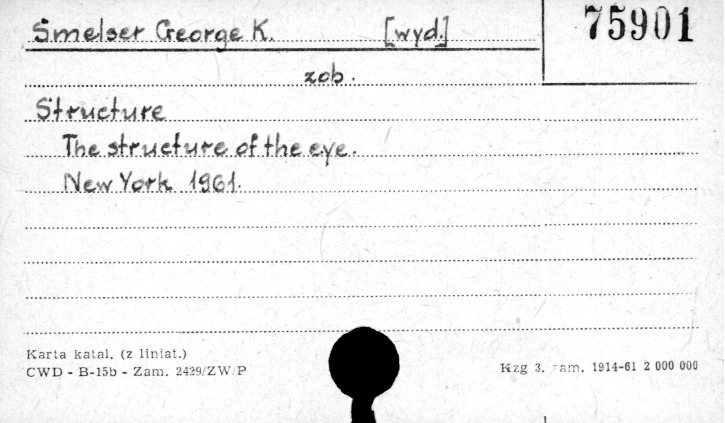 Smelser George K. [wyd.] 75901
zob.
Structure
The structure of the eye.
New York 1961.
Karta katal. (z liniat.)
CWD - B-15b - Zam. 2429/ZW/P
Kzg 3. zam. 1914-61 2 000 000